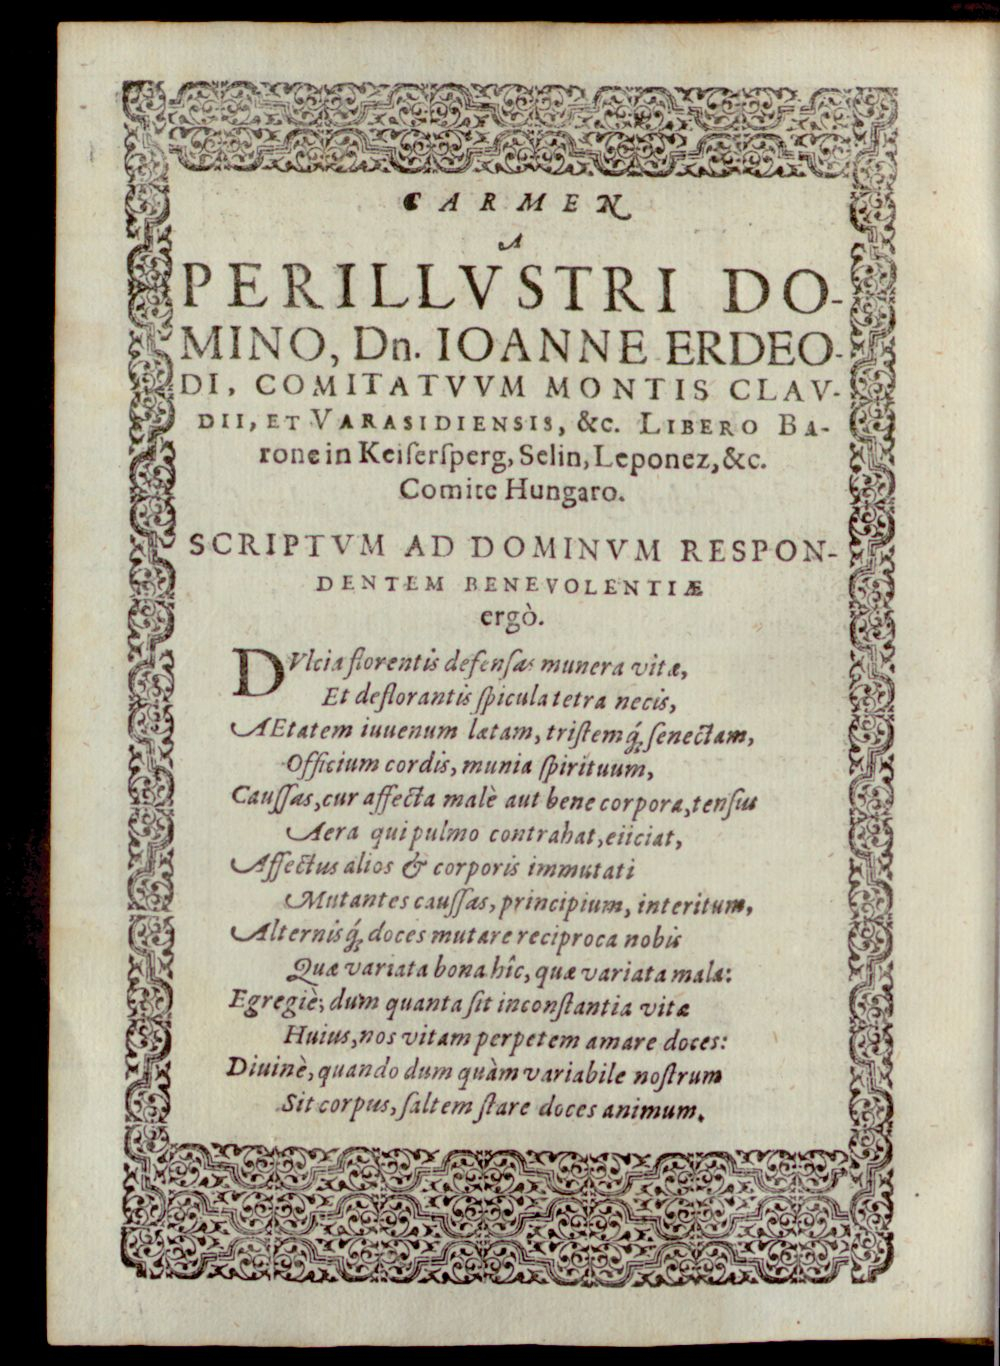 CARMEN
A
PERILLVSTRI DO-
MINO, Dn. IOANNE ERDEO-
DI, COMITATVVM MONTIS CLAV-
DII, ET VARASIDIENSIS, &c. LIBERO BA-
rone in Keiserſperg, Selin, Leponez, &c.
Comite Hungaro.
SCRIPTVM AD DOMINVM RESPON-
DENTEM BENEVOLENTIÆ
ergò.
DVlcia florentis defenſas munera vitæ,
Et deflorantis ſpicula tetra necis,
AEtatem iuuenum lætam, triſtemq́; ſenectam,
Officium cordis, munia ſpirituum,
Cauſſas, cur affecta malè aut bene corpora, tenſus
Aera qui pulmo contrahat, eiiciat,
Affectus alios & corporis immutati
Mutantes cauſſas, principium, interitum,
Alternisq́; doces mutare reciproca nobis
Quæ variata bona hîc, quæ variata mala:
Egregiè; dum quanta ſit inconſtantia vitæ
Huius, nos vitam perpetem amare doces:
Diuinè, quando dum quàm variabile noſtrum
Sit corpus, ſaltem ſtare doces animum.